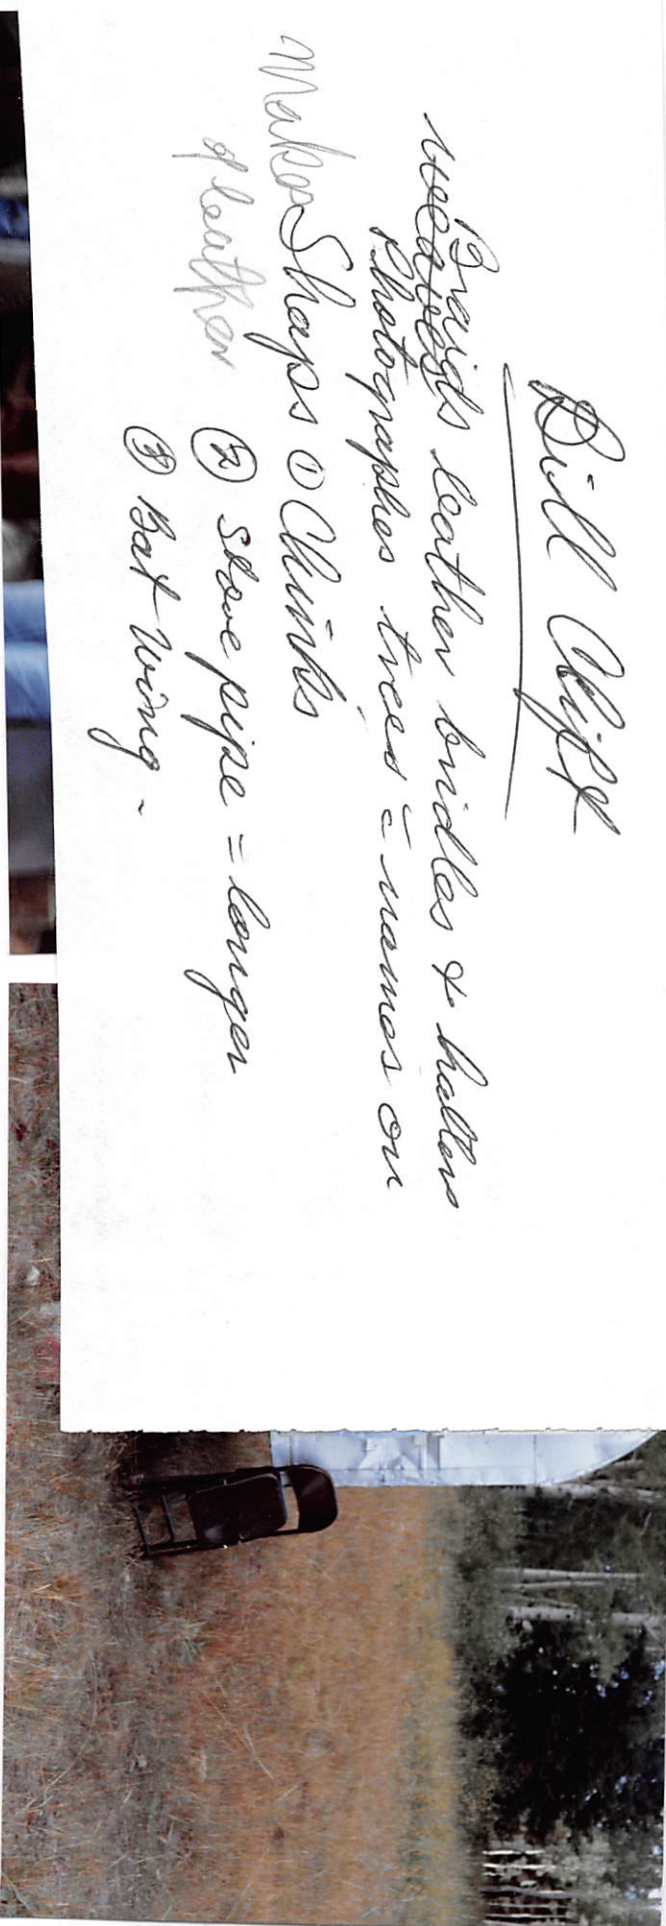 Bill Clift
Braids
weaves leather bridles & halters
Photographes trees = names on
Makes Shaps ① Chinks
of leather ② Stove pipe = longer
③ Bat Wing -